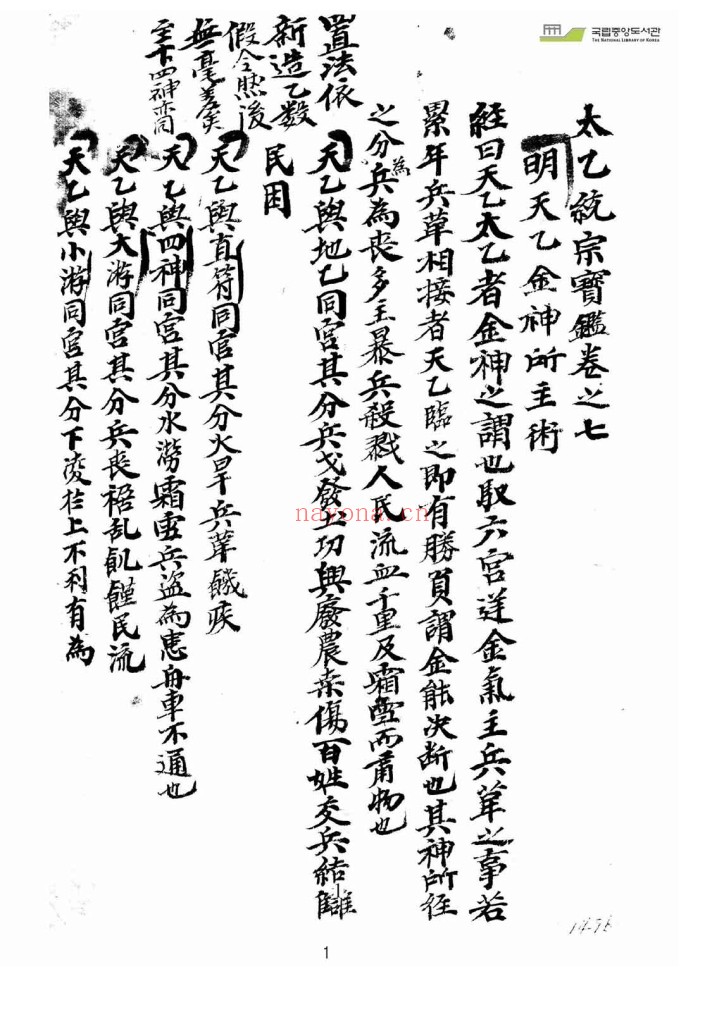 국립중앙도서관
THE NATIONAL LIBRARY OF KOREA
太乙統宗寶鑑卷之七
明天乙金神所主術
經曰天乙太乙者金神之謂也馭六宮逆金氣主兵革之事若
累年兵革相接者天乙臨之即有勝負謂金能決断也其神所徑
之分為兵為丧多主暴兵殺戮人民流血千里及霜雪而肅物也
天乙與地乙同宮其分兵戈發土功興廢農桒傷百姓交兵結讎
民困
天乙與直符同宮其分火旱兵革饑疾
天乙與四神同宮其分水澇霜雹兵盜為患舟車不通也
天乙與大游同宮其分兵丧禍乱飢饉民流
天乙與小游同宮其分下凌扵上不利有為
置法依
新造乙数
假令然後
無毫差矣
至十四神當同
nayona.cn
14-78
1